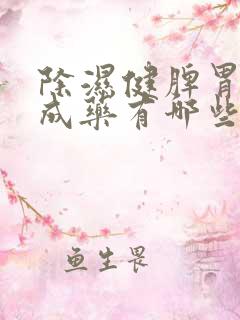 除濕健脾胃
成藥有哪些
魚生畏